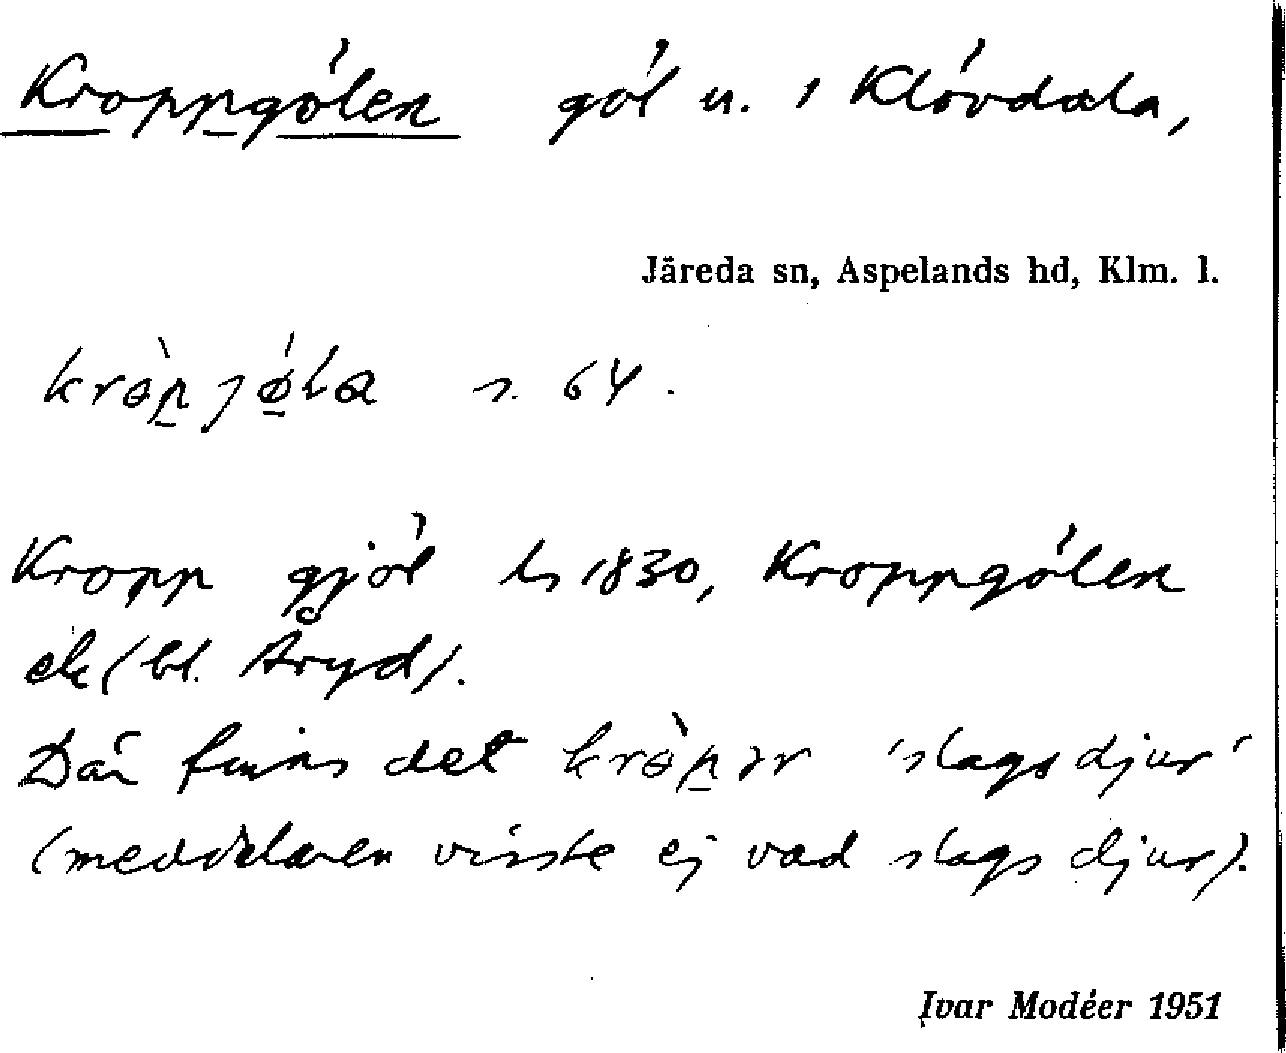 Kroppgölen göl n. i Klövdala,
Järeda sn, Aspelands hd, Klm. l.
s. 64.
Kropp gjöl ls 1830, Kroppgölen
ek (bl. Åryd).
Där finns det krɵ̀p̠ər 'slags djur'
(meddelaren visste ej vad slags djur).
Ivar Modéer 1951